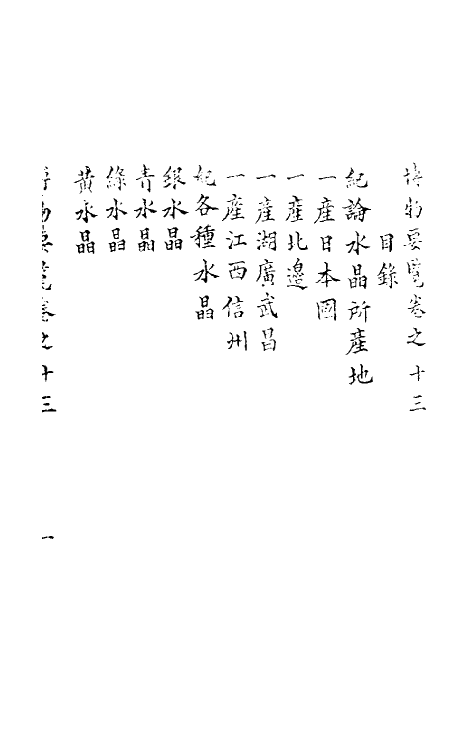 博物要覧卷之十三
目錄
紀論水晶所產地
一產日本國
一產北邊
一產湖廣武昌
一產江西信州
紀各種水晶
銀水晶
青水晶
綠水晶
黃水晶
博物要覧卷之十三
一